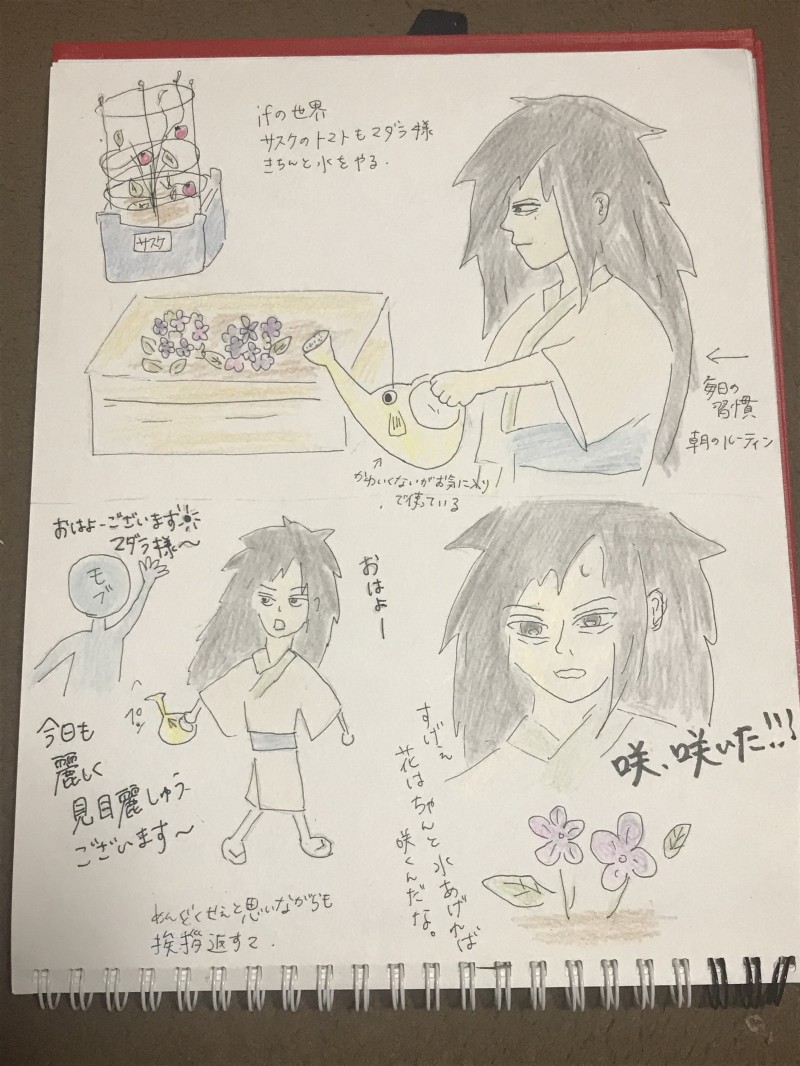 ifの世界
サスケのトマトもマダラ様
きちんと水をやる.
サスケ
←
毎日の
習慣
朝のルーティン
↑
かわいくないがお気に入り
で使っている
おはよーございます
マダラ様〜
モブ
おはよー
今日も
麗しく
見目麗しゅう
ございます〜
めんどくせぇと思いながらも
挨拶返すマ.
咲、咲いた!!!
すげぇ
花はちゃんと水あげれば
咲くんだな。